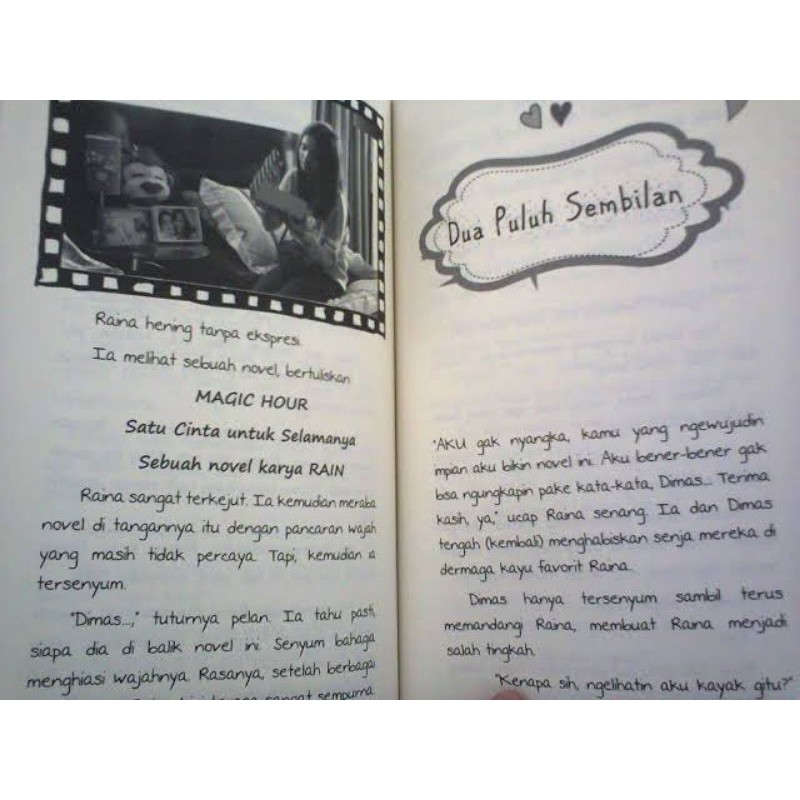 Raina hening tanpa ekspresi.
Ia melihat sebuah novel, bertuliskan
MAGIC HOUR
Satu Cinta untuk Selamanya
Sebuah novel karya RAIN
Raina sangat terkejut. Ia kemudian meraba
novel di tangannya itu dengan pancaran wajah
yang masih tidak percaya. Tapi, kemudian ia
tersenyum.
"Dimas...," tuturnya pelan. Ia tahu pasti
siapa dia di balik novel ini. Senyum bahagia
menghiasi wajahnya. Rasanya, setelah berbagai
sangat sempurna
Dua Puluh Sembilan
"Aku gak nyangka, kamu yang ngewujudin
impian aku bikin novel ini. Aku bener-bener gak
bisa ngungkapin pake kata-kata, Dimas... Terima
kasih, ya," ucap Raina senang. Ia dan Dimas
tengah (kembali) menghabiskan senja mereka di
dermaga kayu favorit Raina.
Dimas hanya tersenyum sambil terus
memandangi Raina, membuat Raina menjadi
salah tingkah.
"Kenapa sih, ngelihatin aku kayak gitu?"